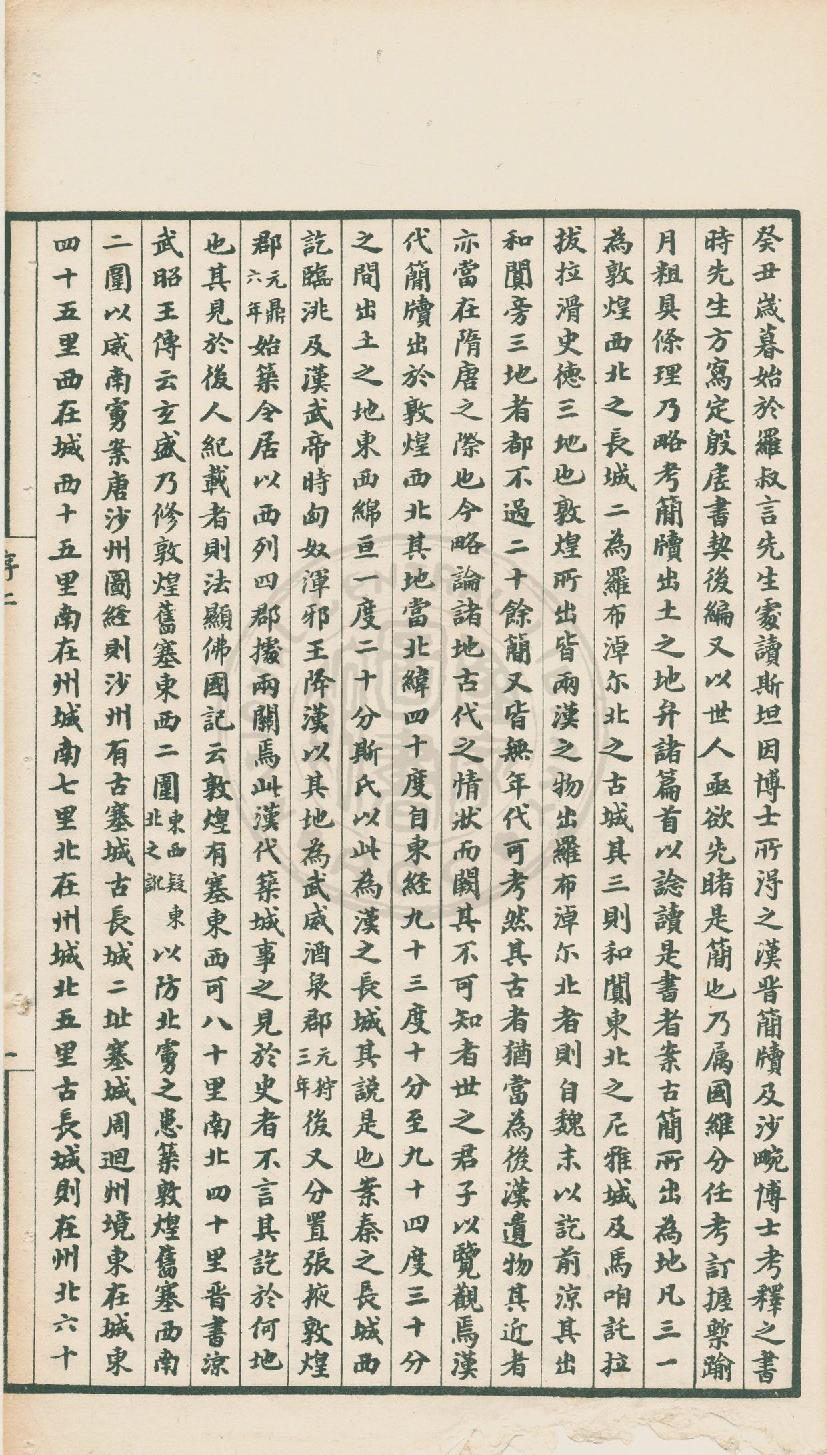 癸丑歲暮始於羅叔言先生處讀斯坦因博士所淂之漢晋簡牘及沙畹博士考釋之書
時先生方寫定殷虛書契後編又以世人亟欲先睹是簡也乃属國維分任考訂握槧踰
月粗具條理乃略考簡牘出土之地弁諸篇首以諗讀是書者案古簡所出為地凡三一
為敦煌西北之長城二為羅布淖尔北之古城其三則和闐東北之尼雅城及馬咱託拉
拔拉滑史德三地也敦煌所出皆兩漢之物出羅布淖尔北者則自魏末以訖前涼其出
和闐旁三地者都不過二十餘簡又皆無年代可考然其古者猶當為後漢遺物其近者
亦當在隋唐之際也今略論諸地古代之情狀而闕其不可知者世之君子以覽觀焉漢
代簡牘出於敦煌西北其地當北緯四十度自東經九十三度十分至九十四度三十分
之間出土之地東西綿亘一度二十分斯氏以此為漢之長城其説是也案秦之長城西
訖臨洮及漢武帝時匈奴渾邪王降漢以其地為武威酒泉郡元狩三年後又分置張掖敦煌
郡元鼎六年始築令居以西列四郡據兩關焉此漢代築城事之見於史者不言其訖於何地
也其見於後人紀載者則法顯佛國記云敦煌有塞東西可八十里南北四十里晋書涼
武昭王傳云玄盛乃修敦煌舊塞東西二圍東西疑東北之訛以防北虜之患築敦煌舊塞西南
二圍以威南虜案唐沙州圖經則沙州有古塞城古長城二址塞城周迴州境東在城東
四十五里西在城西十五里南在州城南七里北在州城北五里古長城則在州北六十
序二
一